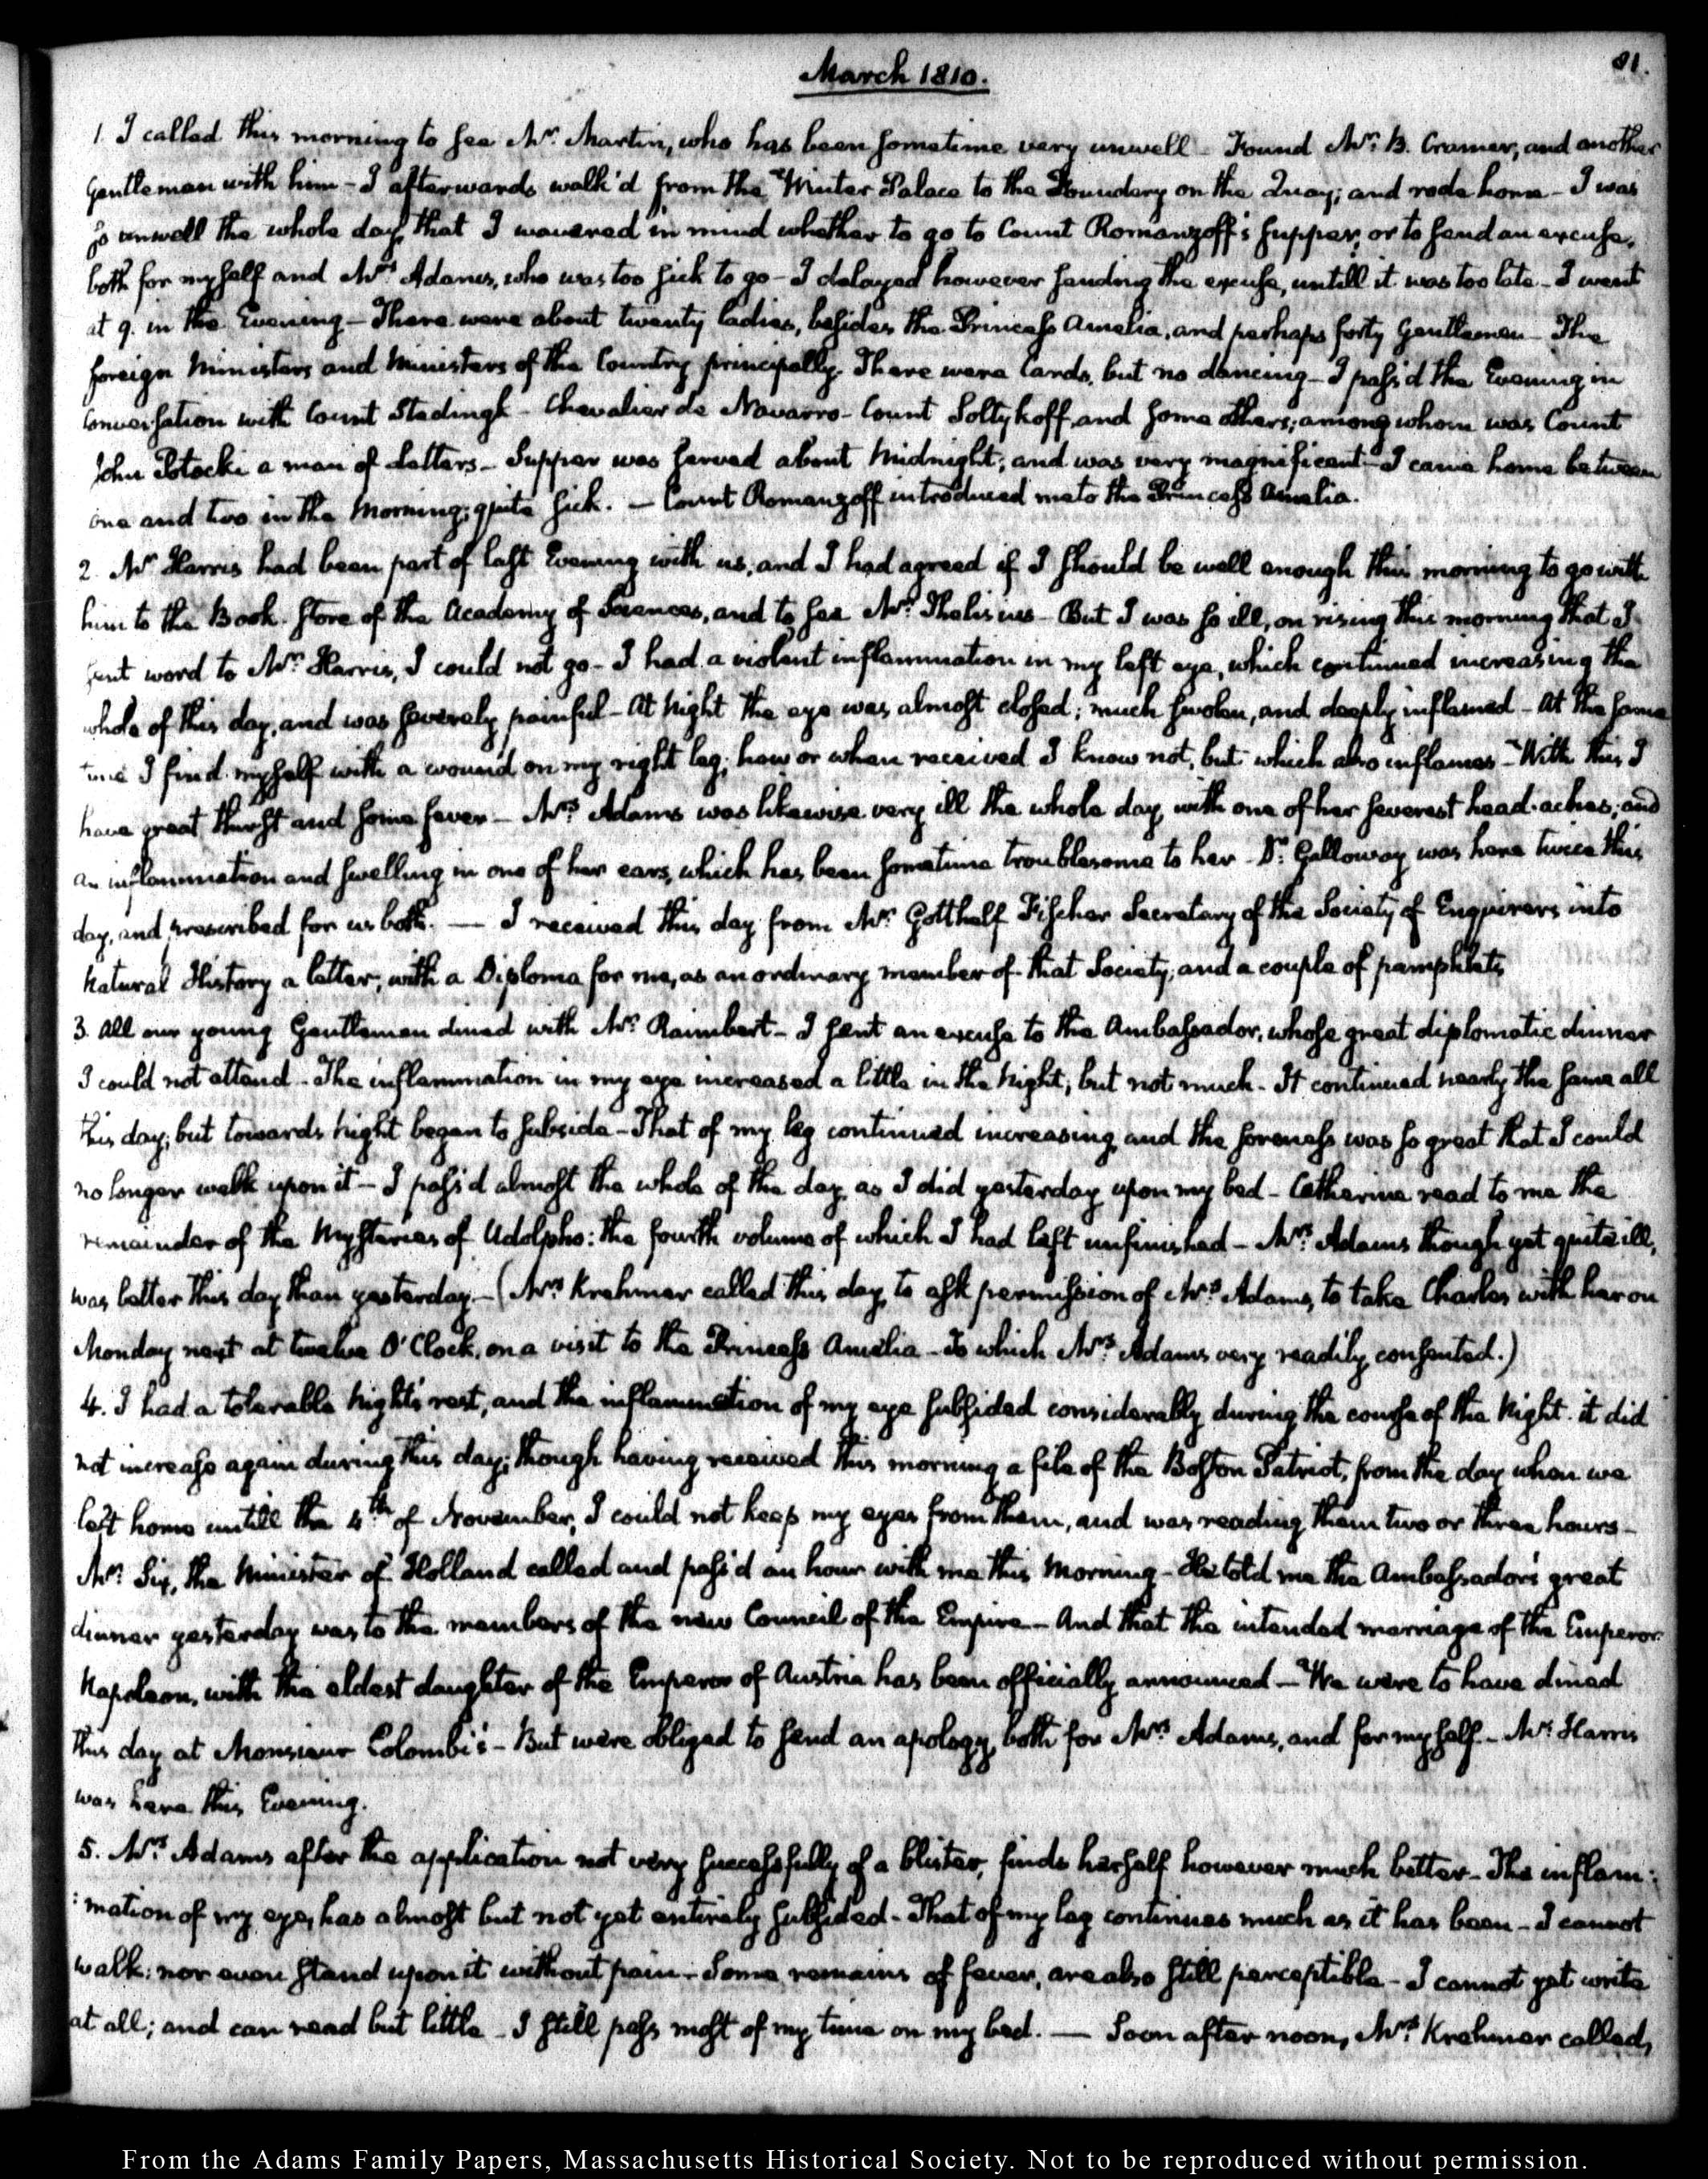 March 1810.
81.
1. I called this morning to see Mr. Martin, who has been sometime very unwell – Found Mr. B. Cramer, and another
Gentleman with him – I afterwards walk'd from the Winter Palace to the Foundery on the Quay; and rode home – I was
so unwell the whole day, that I wavered in mind whether to go to Count Romanzoff's supper, or to send an excuse,
both for myself and Mrs. Adams, who was too sick to go – I delayed however sending the excuse, untill it was too late – I went
at 9. in the Evening – There were about twenty ladies, besides the Princess Amelia, and perhaps forty Gentlemen – The
foreign Ministers and Ministers of the Country principally. There were Cards, but no dancing – I pass'd the Evening in
Conversation with Count Stedingk – Chevalier de Navarro – Count Soltykoff, and some others; among whom was Count
John Potocki a man of Letters – Supper was served about Midnight; and was very magnificent – I came home between
one and two in the Morning; quite sick. – Count Romanzoff introduced me to the Princess Amelia.
2. Mr Harris had been part of last Evening with us, and I had agreed if I should be well enough this morning to go with
him to the Book-store of the Academy of Sciences, and to see Mr. Thelisius – But I was so ill, on rising this morning that I
sent word to Mr. Harris, I could not go – I had a violent inflammation in my left eye, which continued increasing the
whole of this day, and was severely painful – At Night the eye was almost closed; much swolen, and deeply inflamed – At the same
time I find myself with a wound on my right leg; how or when received I know not, but which also inflames – With this I
have great thirst and some fever – Mrs. Adams was likewise very ill the whole day, with one of her severest head-aches; and
an inflammation and swelling in one of her ears, which has been sometime troublesome to her – Dr. Galloway was here twice this
day, and prescribed for us both. — I received this day from Mr. Gotthelf Fischer Secretary of the Society of Enquirers into
Natural History a letter, with a Diploma for me, as an ordinary member of that Society; and a couple of pamphlets
3. All our young Gentlemen dined with Mr. Raimbert – I sent an excuse to the Ambassador, whose great diplomatic dinner
I could not attend – The inflammation in my eye increased a little in the Night, but not much – It continued nearly the same all
this day; but towards Night began to subside – That of my leg continued increasing, and the soreness was so great that I could
no longer walk upon it – I pass'd almost the whole of the day, as I did yesterday upon my bed – Catherine read to me the
remainder of the Mysteries of Udolpho: the fourth volume of which I had left unfinished – Mrs. Adams though yet quite ill,
was better this day than yesterday. – (Mrs Krehmer called this day, to ask permission of Mrs. Adams, to take Charles with her on
Monday next at twelve O'Clock, on a visit to the Princess Amelia – To which Mrs. Adams very readily consented.)
4. I had a tolerable Night's rest, and the inflammation of my eye subsided considerably during the course of the Night. it did
not increase again during this day; though having received this morning a file of the Boston Patriot, from the day when we
left home untill the 4th. of November, I could not keep my eyes from them, and was reading them two or three hours –
Mr. Six, the Minister of Holland called and pass'd an hour with me this Morning – He told me the Ambassador's great
dinner yesterday was to the members of the new Council of the Empire – And that the intended marriage of the Emperor
Napoleon, with the eldest daughter of the Emperor of Austria has been officially announced – We were to have dined
this day at Monsieur Colombi's – But were obliged to send an apology, both for Mrs. Adams, and for myself – Mr. Harris
was here this Evening.
5. Mrs. Adams after the application not very successfully of a blister, finds herself however much better – The inflam:
:mation of my eye, has almost but not yet entirely subsided – That of my leg continues much as it has been – I cannot
walk: nor even stand upon it without pain – Some remains of fever, are also still perceptible – I cannot yet write
at all; and can read but little – I still pass most of my time on my bed. — Soon after noon, Mrs. Krehmer called,
From the Adams Family Papers, Massachusetts Historical Society. Not to be reproduced without permission.